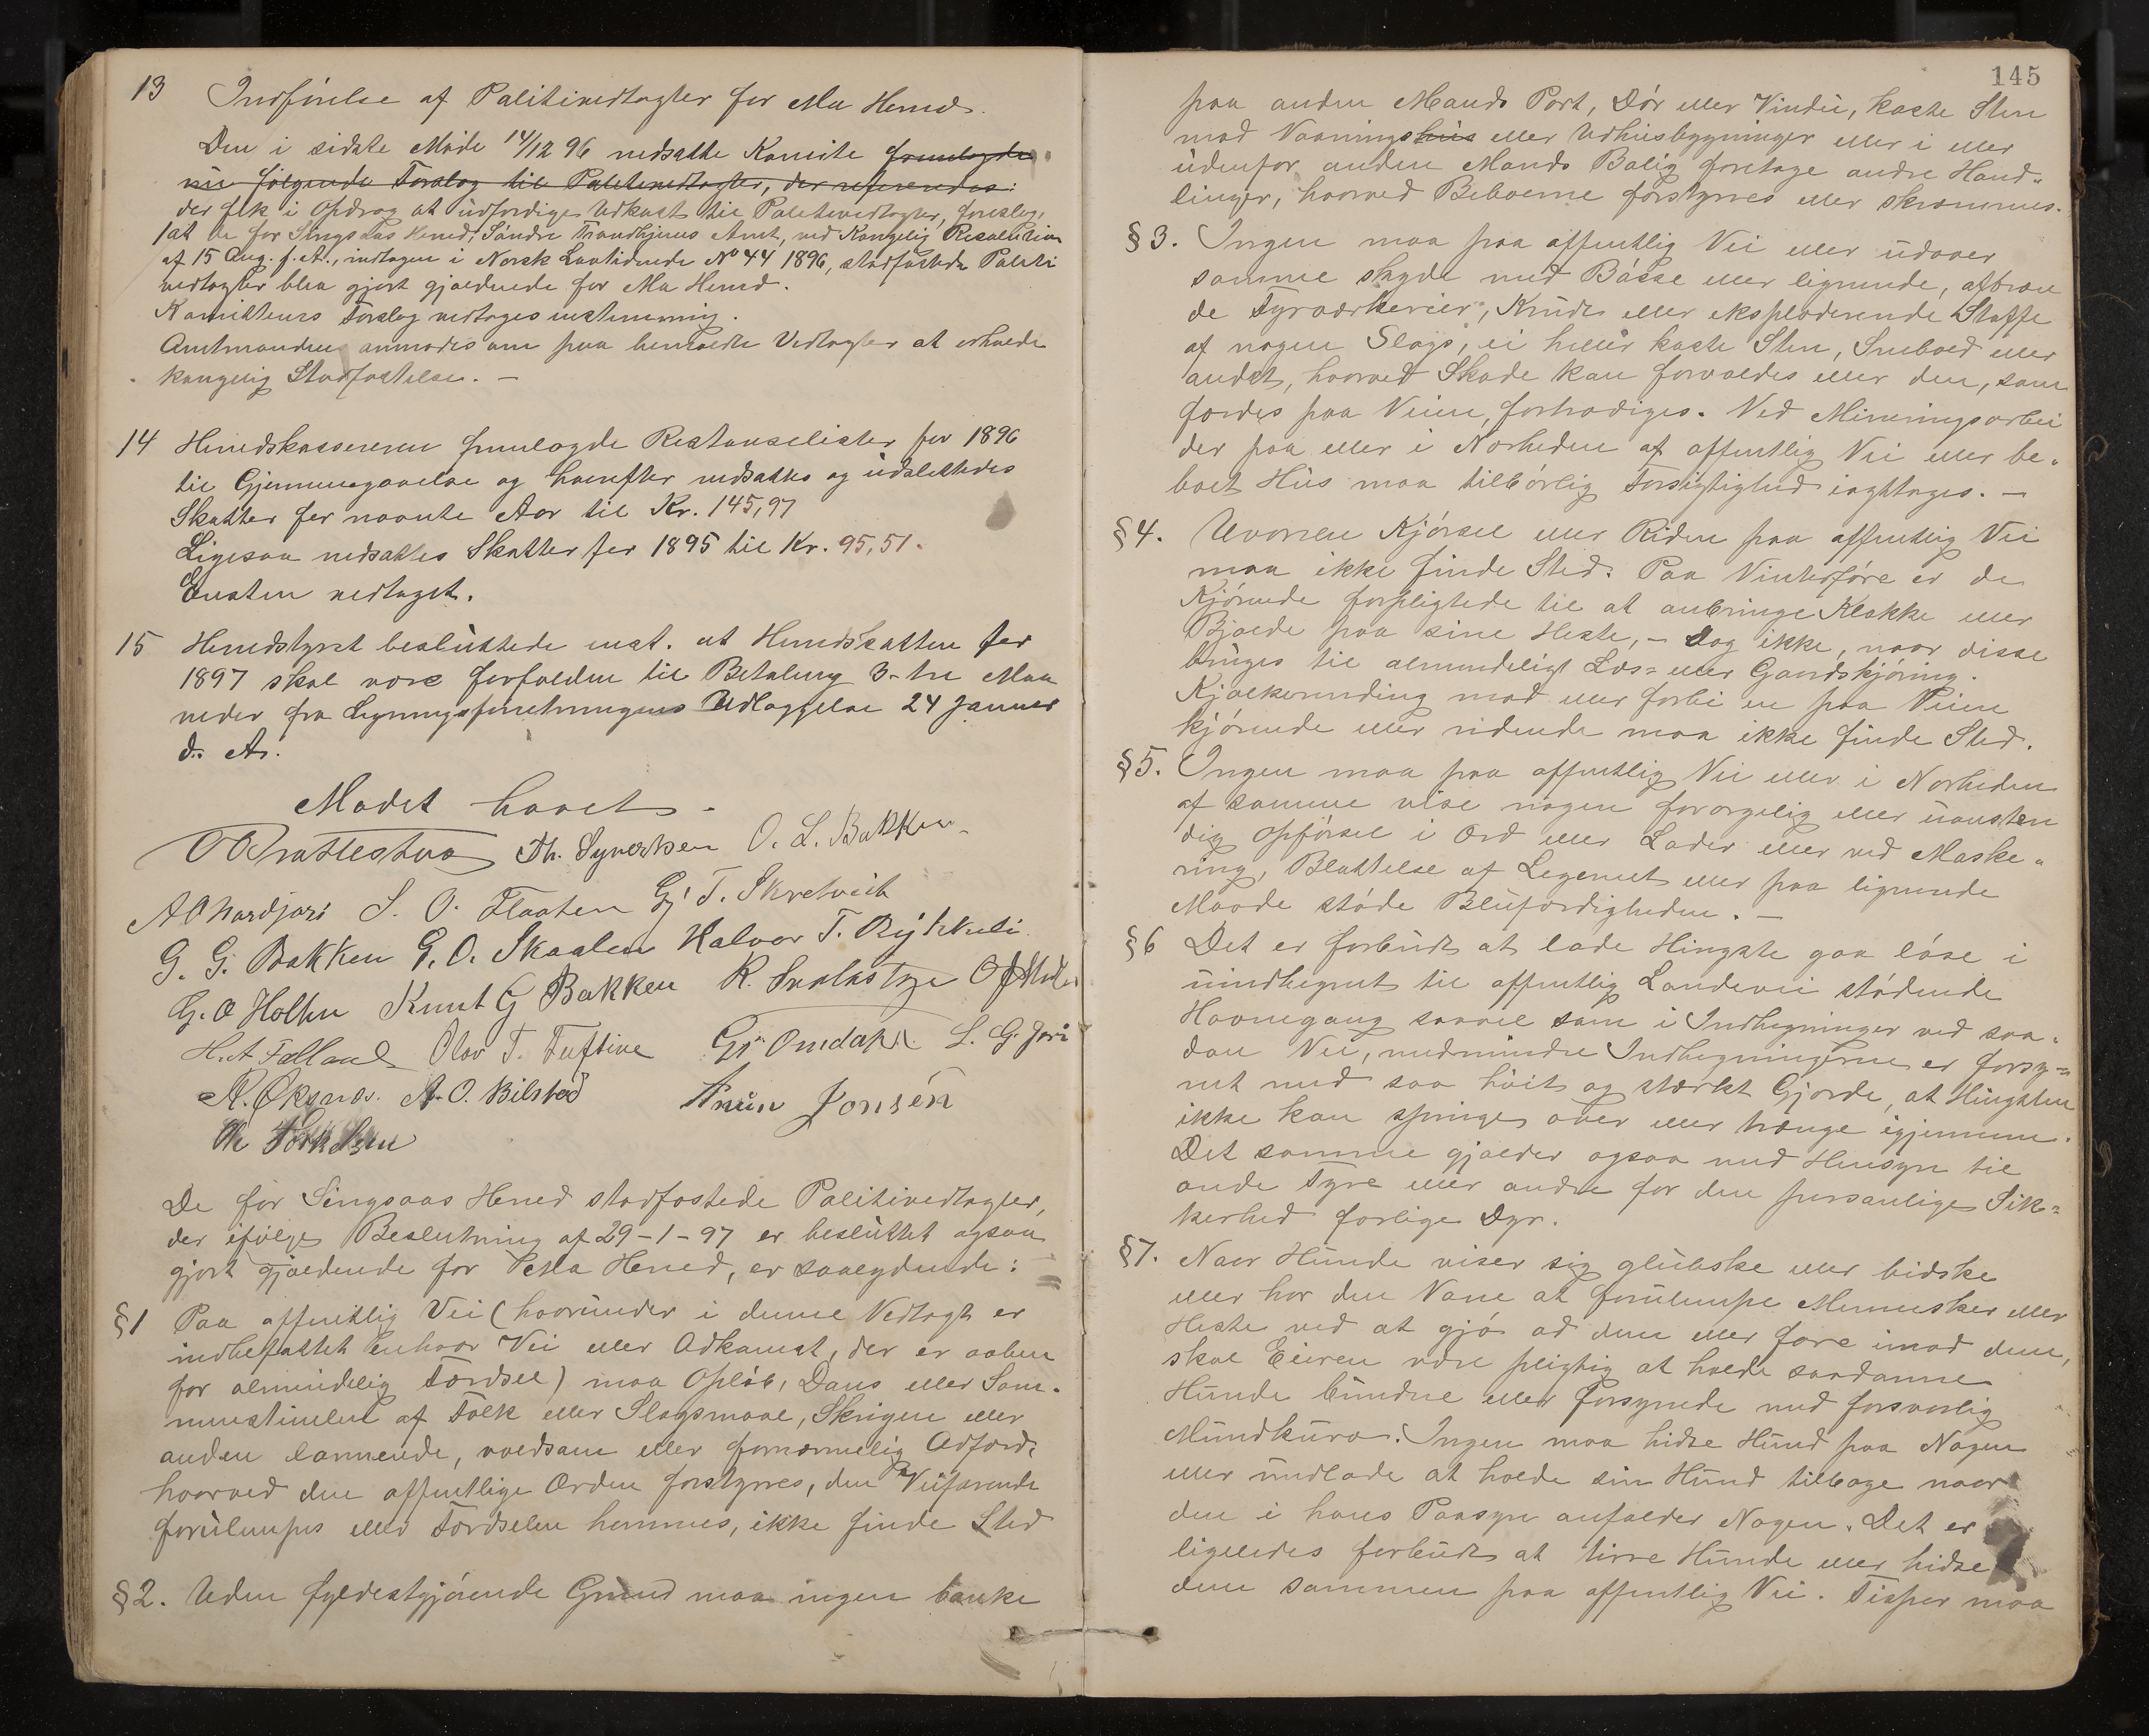 13 Indførelse af Politivedtægter for Mæla Hered.
Den i sidste Møde 14/12 96 nedsatte Komite fremlagde
nu følgende Forslag til Politivedtægter, der refereredes:
der fik i Opdrag at udfærdige Udkast til Politivedtægter, foreslog,
at de for Singsaas Hered, Søndre Trondhjems Amt, ved Kongelig Resolution
af 15 Aug. f. A., indtagen i Norsk Lovtidende No 44 1896, stadfæstede Politi
vedtægter blev gjort gjældende for Mæla Hered.
Komitteens Forslag vedtages enstemmig.
Amtmanden anmodes om paa bemældte Vedtægter at erholde
kongelig Stadfæstelse. —
14 Heredskassereren fremlagde Restanselister for 1896
til Gjennemgaaelse og herefter nedsattes og udslettedes
Skatter for nævnte Aar til Kr. 145,97
Ligesaa nedsattes Skatter for 1895 til Kr. 95,51.
Enstem vedtaget.
15 Heredstyret besluttede enst. at Heredskatten for
1897 skal være forfalden til Betaling 3-tre Maa
neder fra Ligningsforretningens Udlæggelse 24 Januar
d. A.
Mødet hævet.
O Brattestaa Th. Syvertsen O. L. Bakken
A O Nordjore S. O. Flaaten Gj. T. Skretveit
G. G. Bakken G. O. Skaalen Halvor T. Rykkeli
G. O Holten Knut G Bakken
H. A. Folland Olav T. Tuftine Gr. Omdahl L. G. Jore
R. Øksnæs. A. O. Bilstad Anun Jonsén
Th Torkelsen
De for Singsaas Hered stadfæstede Politivedtægter,
der ifølge Beslutning af 29-1-97 er besluttet ogsaa
gjort gjældende for Hered, er saalydende:
§1 Paa offentlig Vei (hvorunder i denne Vedtægt er
indbefattet enhver Vei eller Adkomst, der er aaben
for almindelig Færdsel) maa Opløb, Dans eller Sam-
menstimlen af Folk eller Slagsmaal, Skrigen eller
anden larmende, voldsom eller fornærmelig Adfærd,
hvorved den offentlige Orden forstyrres, den Veifarende
forulempes eller Færdselen hemmes, ikke finde Sted
§2. Uden fyldestgjørende Grund maa ingen banke
145
paa anden Mands Port, Dør eller Vindu, kaste Sten
mod Vaaningshus eller Udhusbygninger eller i eller
udenfor anden Mands Bolig foretage andre Hand-
linger, hvorved Beboerne forstyrres eller skræmmes.
§3. Ingen maa paa offentlig Vei eller udover
samme skyde med Bøsse eller lignende, afbræn
de Fyrværkerier, Krudt eller eksploderende Stoffe
af nogen Slags, ei heller kaste Sten, Snebold eller
andet, hvorved Skade kan forvoldes eller den, som
færdes paa Veien, fortrædiges. Ved Mineringsarbei
der paa eller i Nærheden af offentlig Vei eller be-
boet Hus maa tilbørlig Forsigtighed iagttages. —
§4. Uvorren Kjørsel eller Riden paa offentlig Vei
maa ikke finde Sted. Paa Vinterføre er de
Kjørende forpligtede til at anbringe Klokke eller
Bjælde paa sine Heste, — dog ikke, naar disse
bruges til almindeligt Læs- eller Gaardskjøring.
Kjælkerending mod eller forbi en paa Veien
kjørende eller ridende maa ikke finde Sted.
§5. Ingen maa paa offentlig Vei eller i Nærheden
af samme vise nogen forargelig eller uanstæn
dig Opførsel i Ord eller Lader eller ved Maske-
ring, Blottelse af Legemet eller paa lignende
Maade støde Blufærdigheden. —
§6 Det er forbudt at lade Hingste gaa løse i
uindhegnet til offentlig Landevei stødende
Havnegang saavel som i Indhegninger ved saa-
dan Vei, medmindre Indhegningerne er forsy-
net med saa høit og stærkt Gjærde, at Hingsten
ikke kan springe over eller trænge igjennem.
Det samme gjælder ogsaa med Hensyn til
onde Tyre eller andre for den personlige Sik-
kerhed farlige Dyr.
§7. Naar Hunde viser sig glubske eller bidske
eller har den Vane at forulempe Mennesker eller
Heste ved at gjø ad dem eller fare imod dem,
skal Eieren være pligtig at holde saadanne
Hunde bundne eller forsynede med forsvarlig
Mundkurv. Ingen maa hidse Hund paa Nogen
eller undlade at holde sin Hund tilbage naar
den i hans Paasyn anfalder Nogen. Det er
ligeledes forbudt at tirre Hunde eller hidse
dem sammen paa offentlig Vei. Tisper maa